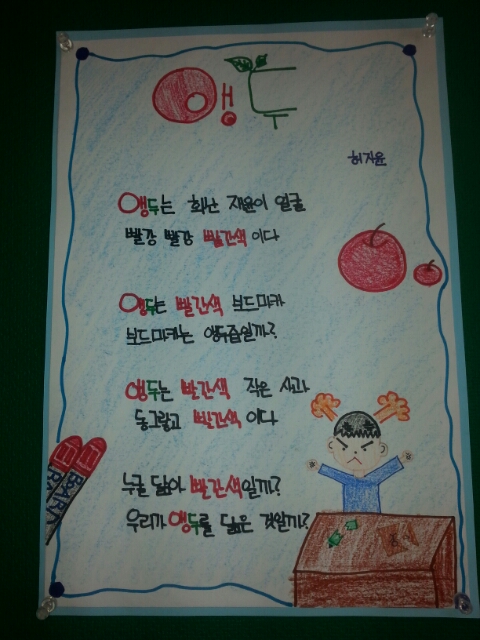 앵두
허지윤
앵두는 화난 재윤이 얼굴
빨강 빨강 빨간색 이다
앵두는 빨간색 보드마카
보드마카는 앵두즙일까?
앵두는 빨간색 작은 사과
동그랗고 빨간색 이다
누굴 닮아 빨간색일까?
우리가 앵두를 닮은 것일까?